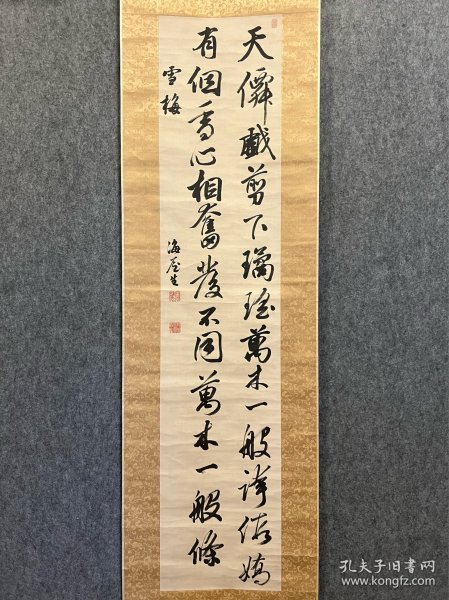 天僊戲剪下璚瑤萬木一般誇佶嬌
有個香心相奮發不同萬木一般條
雪梅
海屋生
孔夫子旧书网
www.kongfz.com